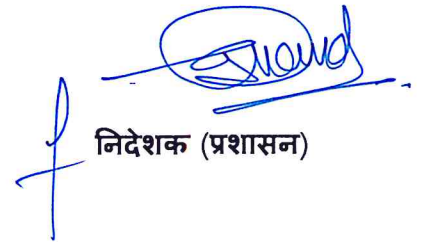 निदेशक (प्रशासन)